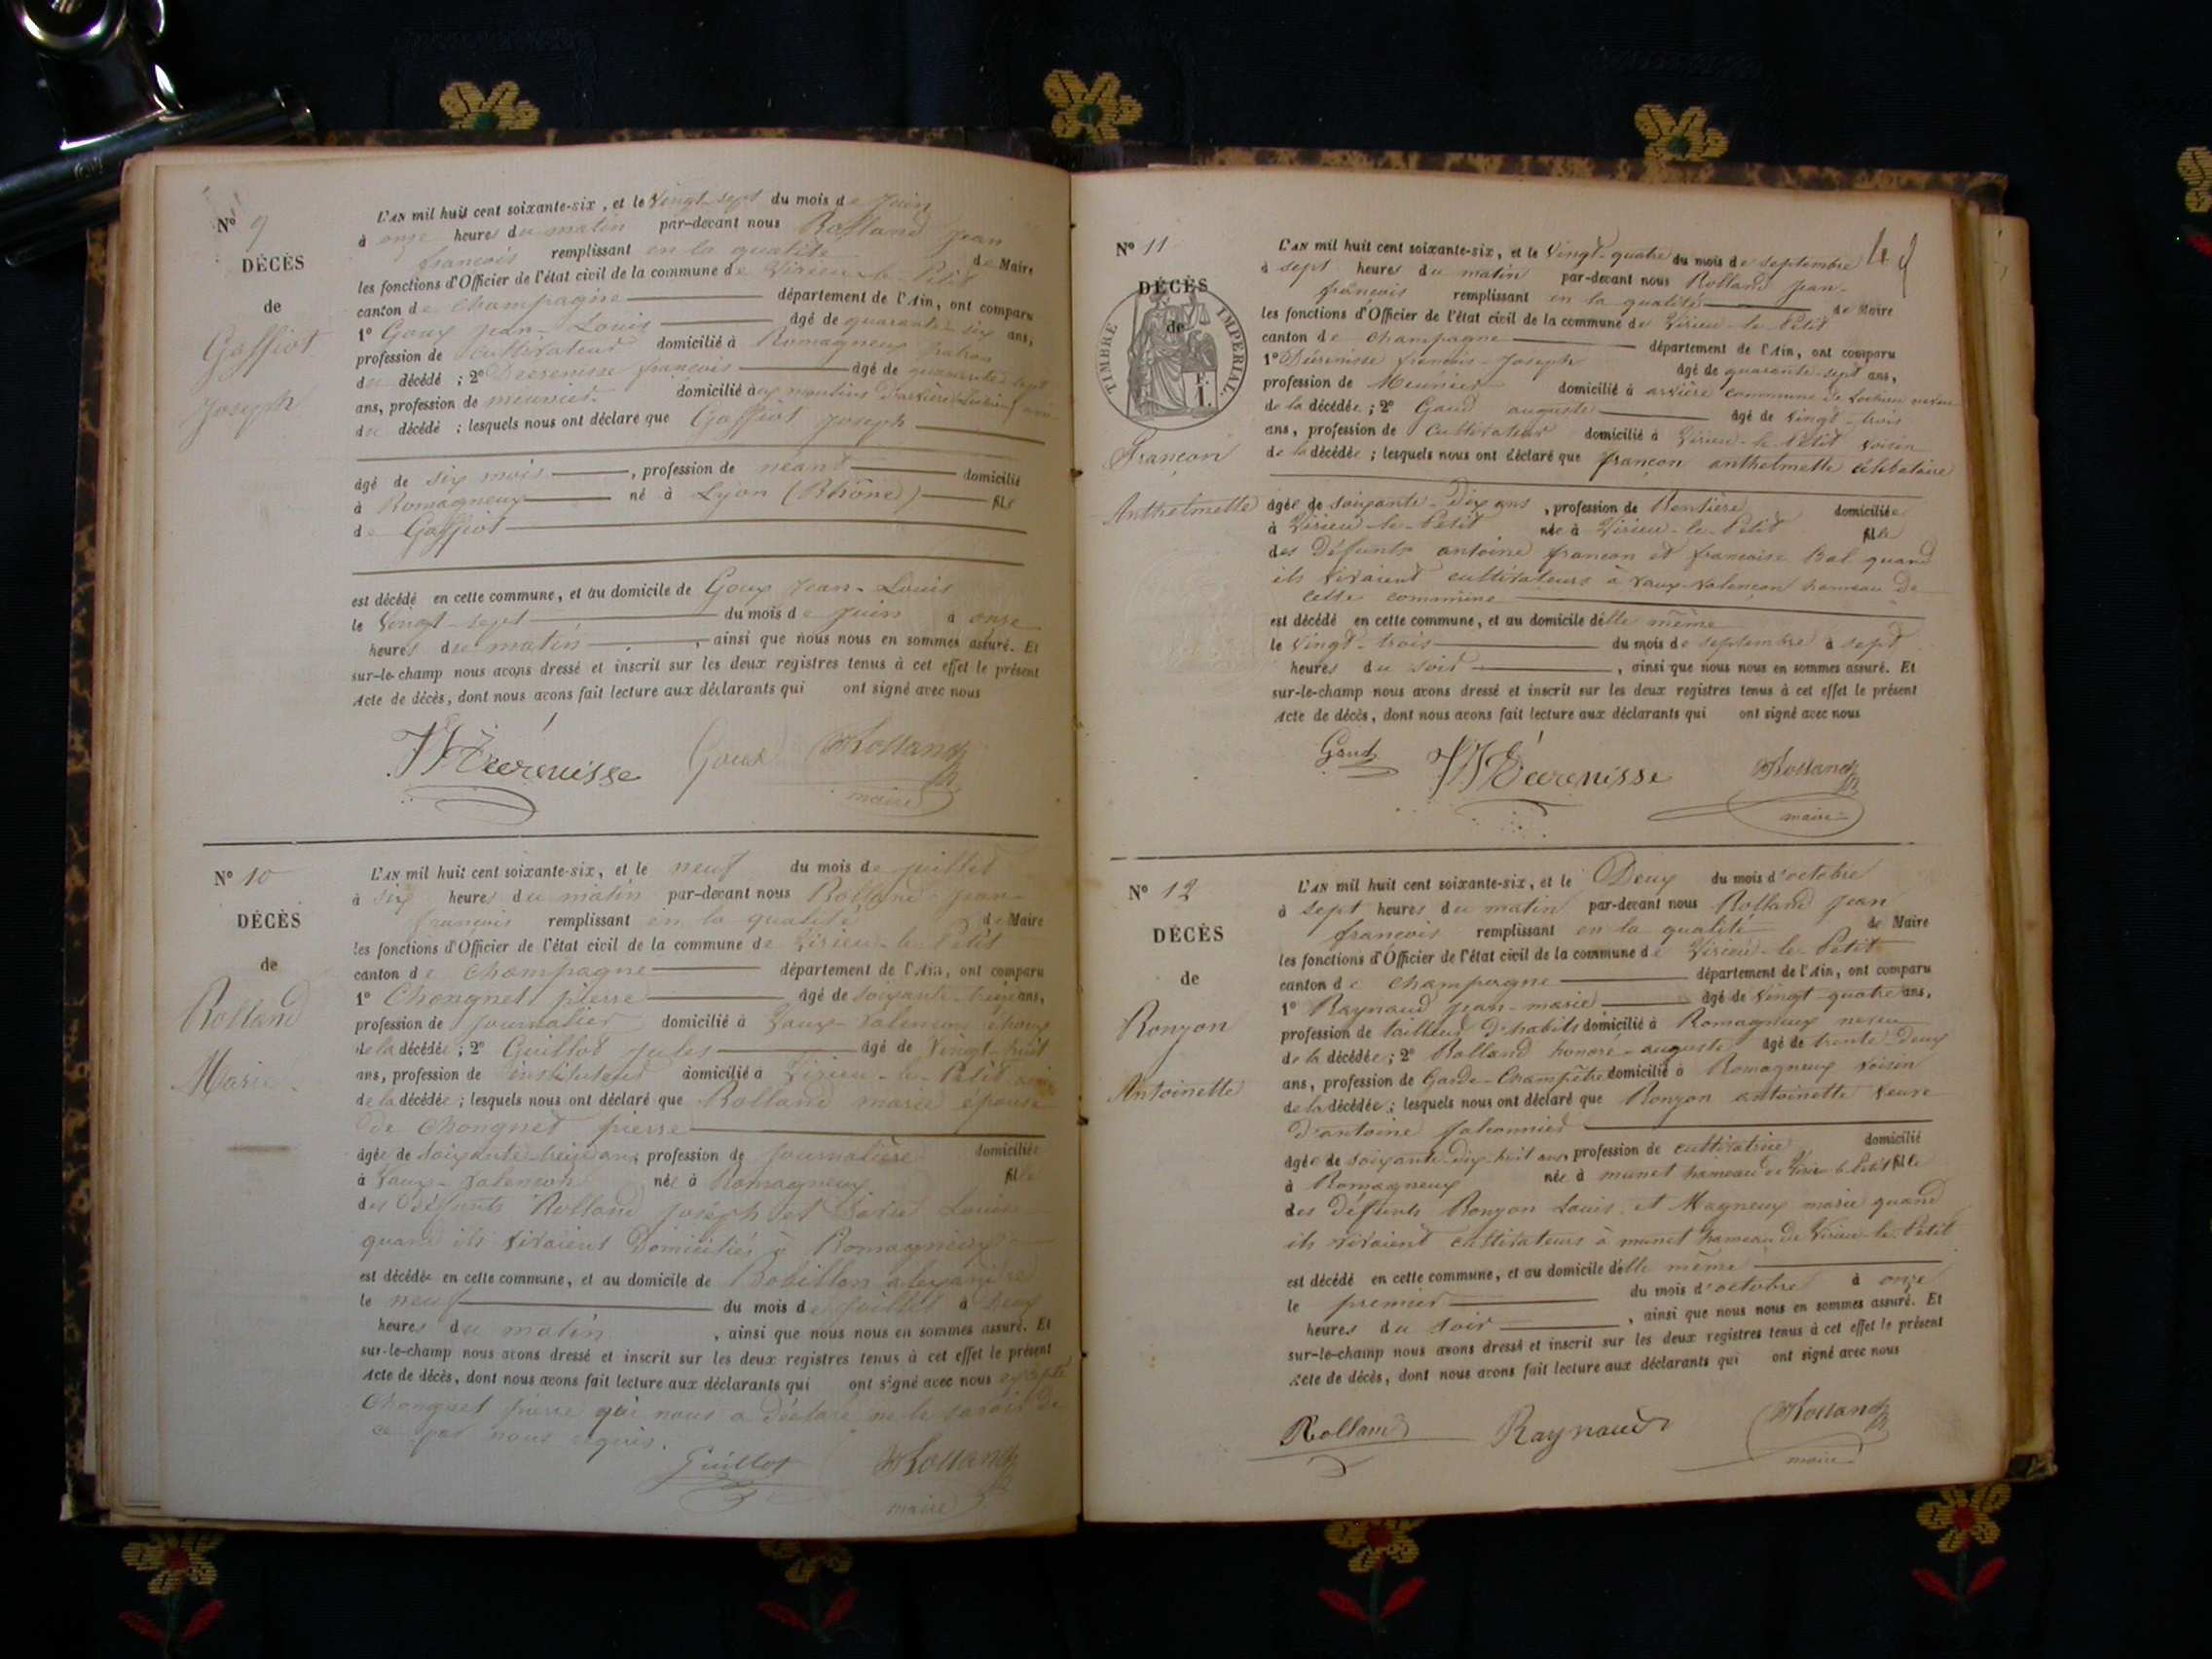 N° 9
DÉCÈS
de
Gaffiot
Joseph
L'AN mil huit cent soixante-six, et le Vingt-sept du mois de Juin
à onze heures du matin par-devant nous Rolland Jean
françois remplissant en la qualité de Maire
les fonctions d'Officier de l'état civil de la commune de Virieu-le-Petit
canton de Champagne département de l'Ain, ont comparu
1° Goux Jean-Louis âgé de quarante-six ans,
profession de cultivateur domicilié à Romagneux patron
du décédé ; 2° françois âgé de quarante sept
ans, profession de meunier domicilié aux moulins d'arvière
du décédé ; lesquels nous ont déclaré que Gaffiot Joseph
âgé de six mois, profession de néant domicilié
à Romagneux né à Lyon (Rhône) fils
de Gaffiot
est décédé en cette commune, et au domicile de Goux Jean-Louis
le Vingt-sept du mois de juin à onze
heures du matin, ainsi que nous nous en sommes assuré. Et
sur-le-champ nous avons dressé et inscrit sur les deux registres tenus à cet effet le présent
Acte de décès, dont nous avons fait lecture aux déclarants qui ont signé avec nous
Goux Rolland
maire
N° 10
DÉCÈS
de
Rolland
Marie
L'AN mil huit cent soixante-six, et le neuf du mois de juillet
à six heures du matin par-devant nous Rolland Jean
françois remplissant en la qualité de Maire
les fonctions d'Officier de l'état civil de la commune de Virieu-le-Petit
canton de Champagne département de l'Ain, ont comparu
1° Chongnet pierre âgé de soixante-treize ans,
profession de journalier domicilié à Vaux-Valencon époux
de la décédée ; 2° Guillot Jules âgé de Vingt-huit
ans, profession de instituteur domicilié à Virieu-le-Petit
de la décédée ; lesquels nous ont déclaré que Rolland marie épouse
de Chongnet pierre
âgée de soixante-treize ans, profession de journalière domiciliée
à Vaux-Valencon née à Romagneux fille
des défunts Rolland joseph et Louise
quand ils vivaient domiciliés à Romagneux
est décédée en cette commune, et au domicile de Bobillon alexandre
le neuf du mois de juillet à Deux
heures du matin, ainsi que nous nous en sommes assuré. Et
sur-le-champ nous avons dressé et inscrit sur les deux registres tenus à cet effet le présent
Acte de décès, dont nous avons fait lecture aux déclarants qui ont signé avec nous excepté
Chongnet pierre qui nous a déclaré ne le savoir de
ce par nous requis.
Guillot Rolland
maire
48
N° 11
DÉCÈS
de
TIMBRE IMPÉRIAL
F. 1.
Françon
Anthelmette
L'AN mil huit cent soixante-six, et le Vingt-quatre du mois de septembre
à sept heures du matin par-devant nous Rolland Jean
françois remplissant en la qualité de Maire
les fonctions d'Officier de l'état civil de la commune de Virieu-le-Petit
canton de Champagne département de l'Ain, ont comparu
1° françois-Joseph âgé de quarante-sept ans,
profession de Meunier domicilié à arvière commune de Lochieu neveu
de la décédée ; 2° Gaud auguste âgé de vingt-trois
ans, profession de Cultivateur domicilié à Virieu-le-Petit voisin
de la décédée ; lesquels nous ont déclaré que françon anthelmette célibataire
âgée de soixante-Dix ans, profession de Rentière domiciliée
à Virieu-le-Petit née à Virieu-le-Petit fille
des Défunts antoine françon et françoise Bal quand
ils vivaient cultivateurs à vaux-valencon hameau de
cette commune
est décédé en cette commune, et au domicile d'elle même
le Vingt-trois du mois de septembre à sept
heures du soir, ainsi que nous nous en sommes assuré. Et
sur-le-champ nous avons dressé et inscrit sur les deux registres tenus à cet effet le présent
Acte de décès, dont nous avons fait lecture aux déclarants qui ont signé avec nous
Gaud Rolland
maire
N° 12
DÉCÈS
de
Ronzon
Antoinette
L'AN mil huit cent soixante-six, et le Deux du mois d'octobre
à sept heures du matin par-devant nous Rolland Jean
françois remplissant en la qualité de Maire
les fonctions d'Officier de l'état civil de la commune de Virieu-le-Petit
canton de Champagne département de l'Ain, ont comparu
1° Raynaud Jean-marie âgé de Vingt-quatre ans,
profession de tailleur d'habits domicilié à Romagneux neveu
de la décédée ; 2° Rolland honoré-auguste âgé de trente Deux
ans, profession de Garde-Champêtre domicilié à Romagneux voisin
de la décédée ; lesquels nous ont déclaré que Ronzon antoinette veuve
d'antoine
âgée de soixante-dix-huit ans, profession de cultivatrice domicilié
à Romagneux née à munet hameau de Virieu-le-Petit fille
des Défunts Ronzon Louis et Magneux marie quand
ils vivaient cultivateurs à munet hameau de Virieu-le-Petit
est décédé en cette commune, et au domicile d'elle même
le premier du mois d'octobre à onze
heures du soir, ainsi que nous nous en sommes assuré. Et
sur-le-champ nous avons dressé et inscrit sur les deux registres tenus à cet effet le présent
Acte de décès, dont nous avons fait lecture aux déclarants qui ont signé avec nous
Rolland Raynaud Rolland
maire